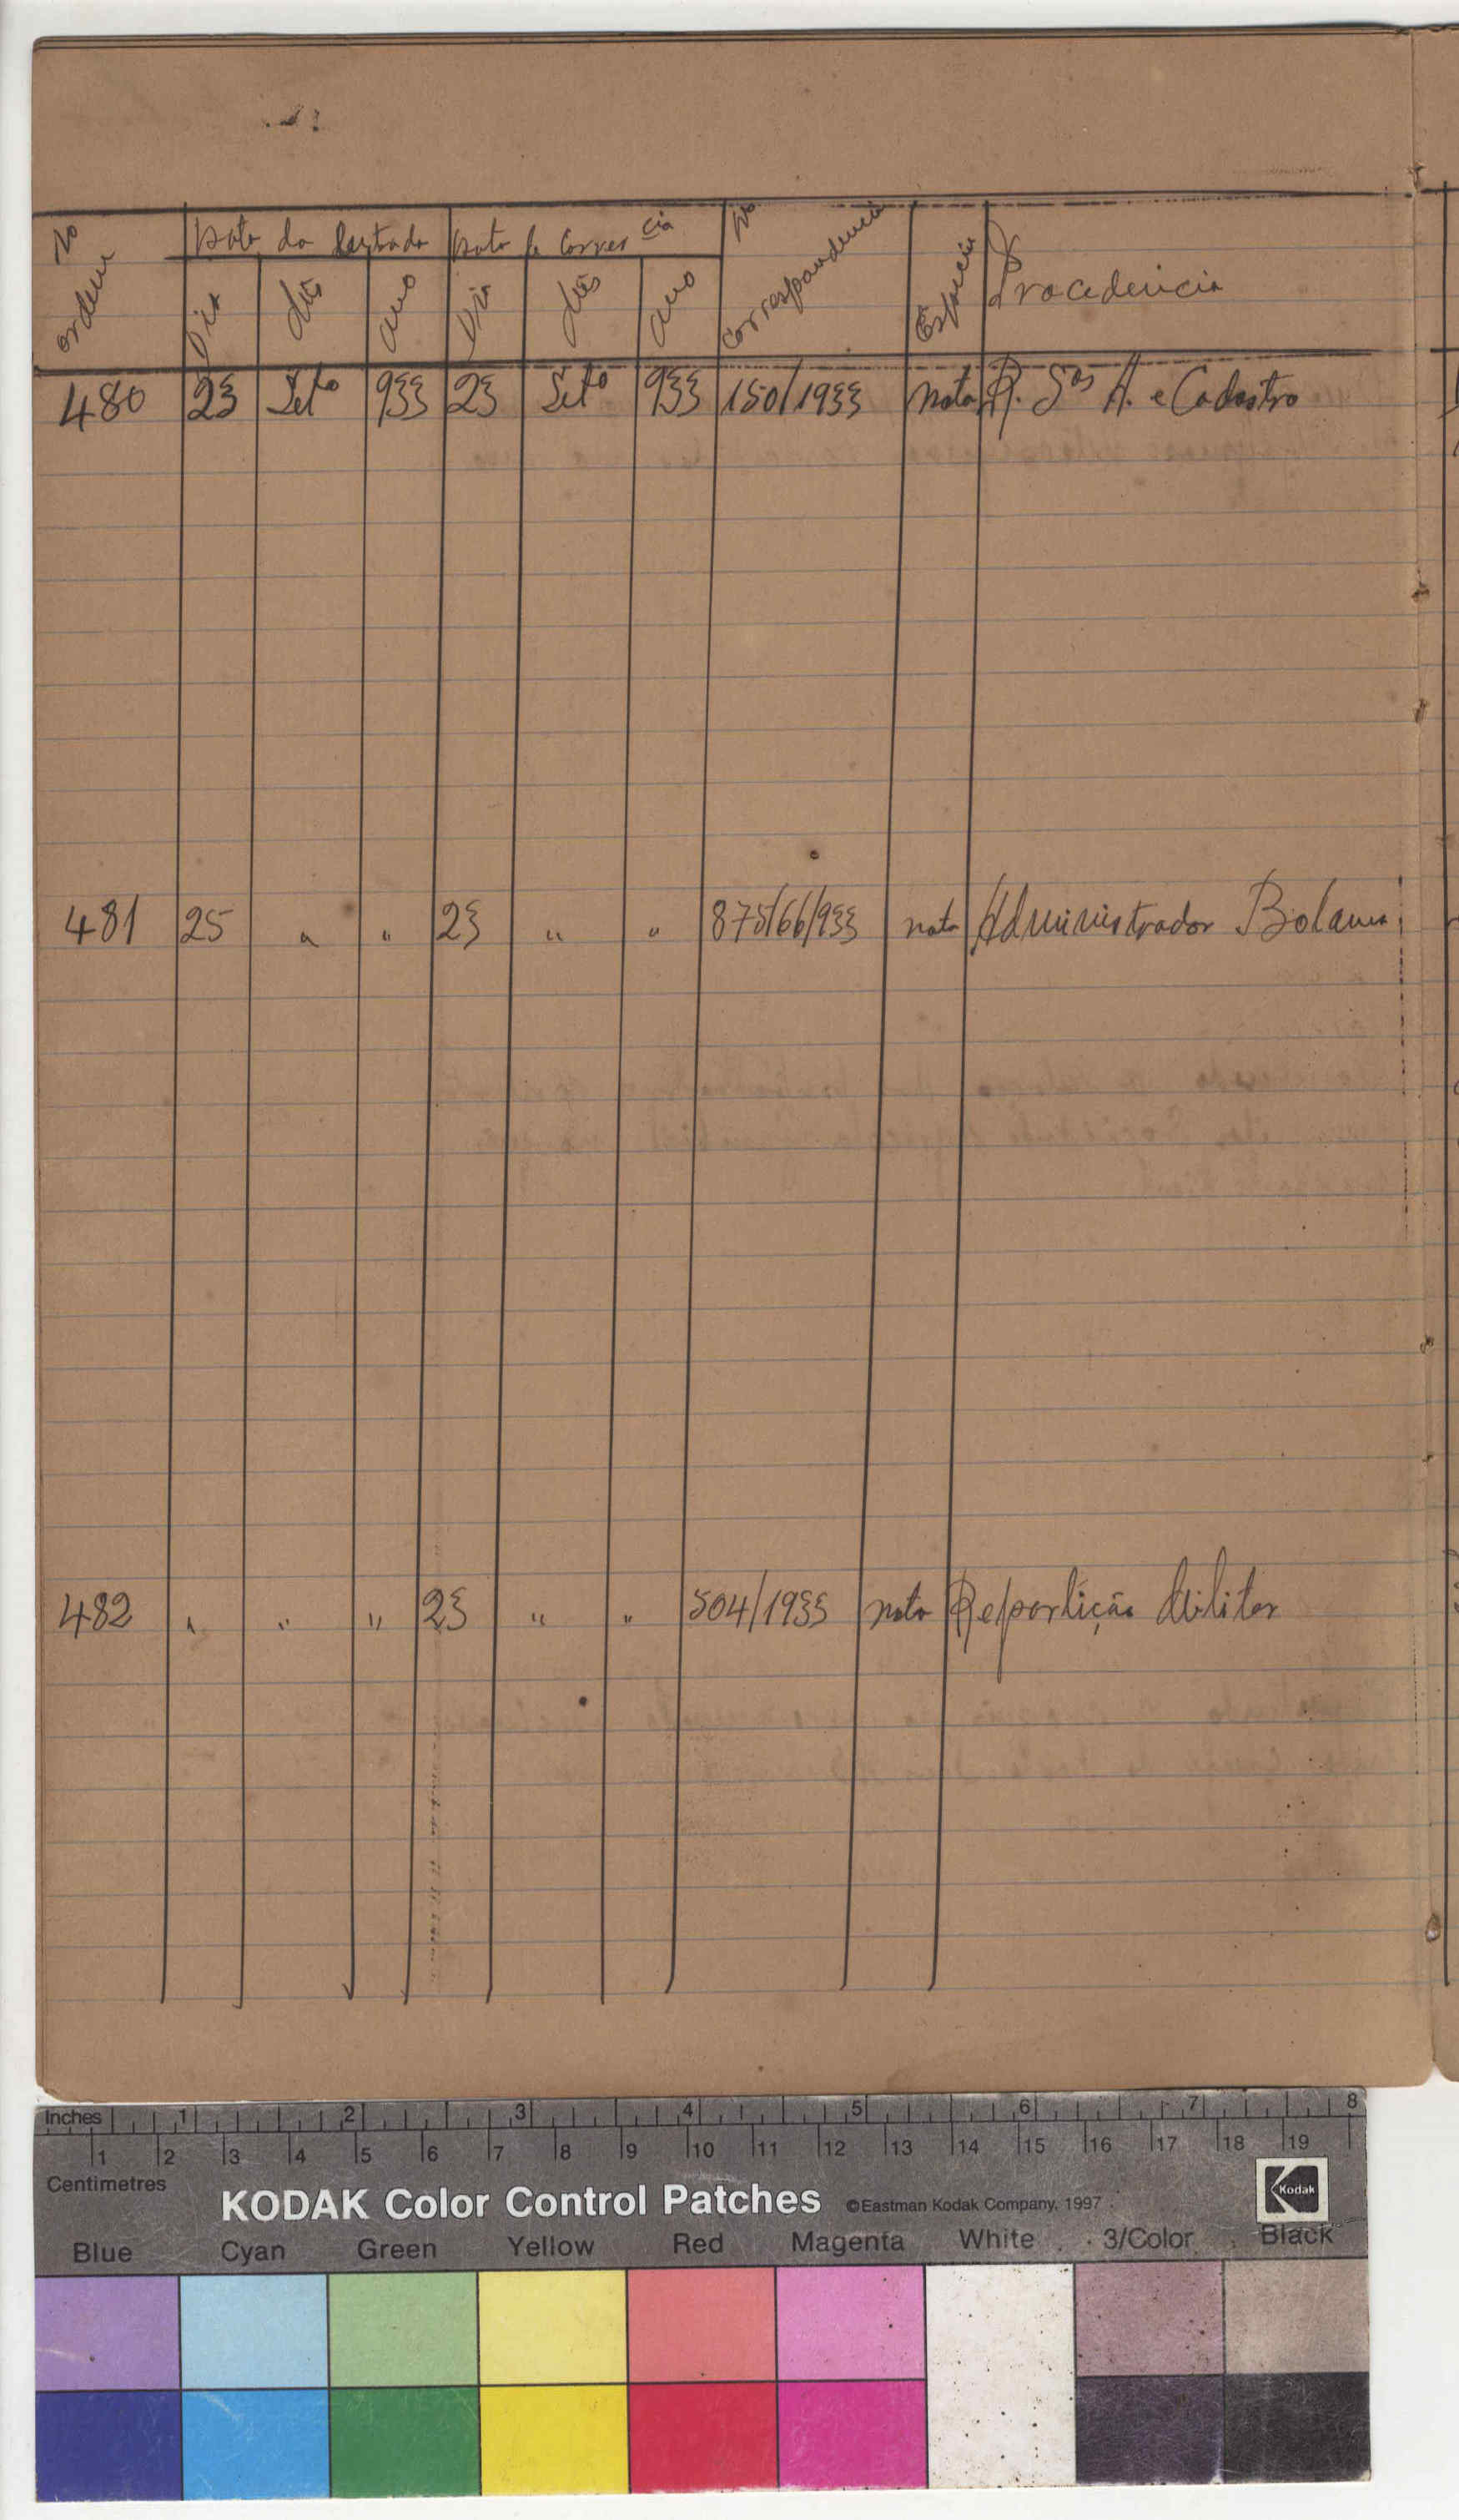 No ordem
Data da Entrada
Data da Corres cia
No correspondencia
Especie
Procedencia
Dia Mês Ano Dia Mês Ano
480 23 Set° 933 23 Set° 933 150/1933 nota R. S°s A. e Cadastro
481 25 " " 23 " " 875/66/933 nota Administrador Bolama
482 " " " 23 " " 504/1933 nota Repartição Militar
Inches 1 2 3 4 5 6 7 8
1 2 3 4 5 6 7 8 9 10 11 12 13 14 15 16 17 18 19
Centimetres
KODAK Color Control Patches ©Eastman Kodak Company, 1997 Kodak
Blue Cyan Green Yellow Red Magenta White 3/Color Black